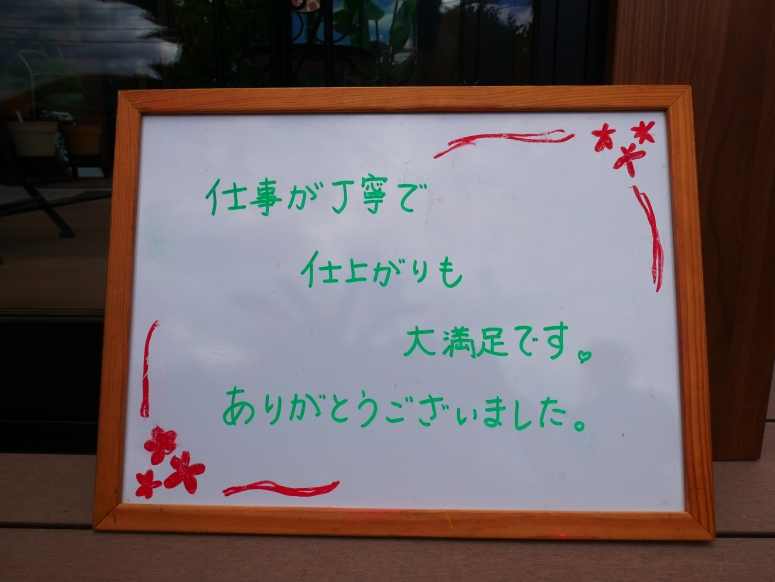 仕事が丁寧で
仕上がりも
大満足です。
ありがとうございました。